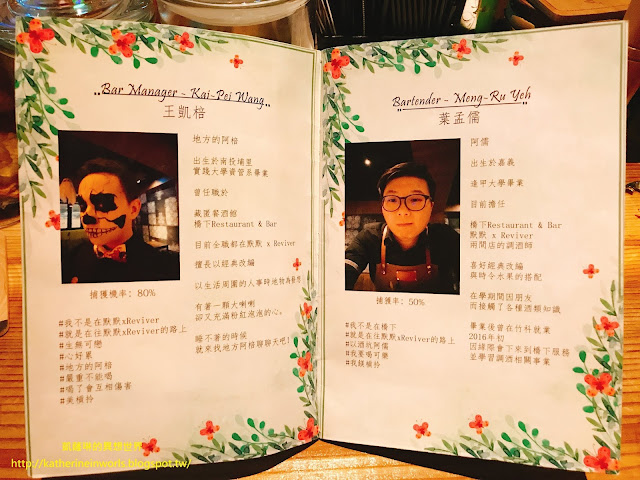 Bar Manager - Kai-Pei Wang
王凱棓
地方的阿棓
出生於南投埔里
實踐大學資管系畢業
曾任職於
藏匿餐酒館
橋下Restaurant & Bar
目前全職都在默默 x Reviver
擅長以經典改編
以生活周圍的人事時地物為發想
有著一顆大喇喇
卻又充滿粉紅泡泡的心。
睡不著的時候
就來找地方阿棓聊聊天吧!
捕獲機率: 80%
#我不是在默默xReviver
#就是在往默默xReviver的路上
#生無可戀
#心好累
#地方的阿棓
#嚴重不能喝
#喝了會互相傷害
#美槓拎
Bartender - Meng-Ru Yeh
葉孟儒
阿儒
出生於嘉義
逢甲大學畢業
目前擔任
橋下Restaurant & Bar
默默 x Reviver
兩間店的調酒師
喜好經典改編
與時令水果的搭配
在學期間因朋友
而接觸了各種酒類知識
畢業後曾在竹科就業
2016年初
因緣際會下來到橋下服務
並學習調酒相關事業
捕獲率: 50%
#我不是在橋下
#就是在往默默xReviver的路上
#以酒坑阿儒
#我要喝可樂
#我錢槓拎
http://katherineinworls.blogspot.tw/